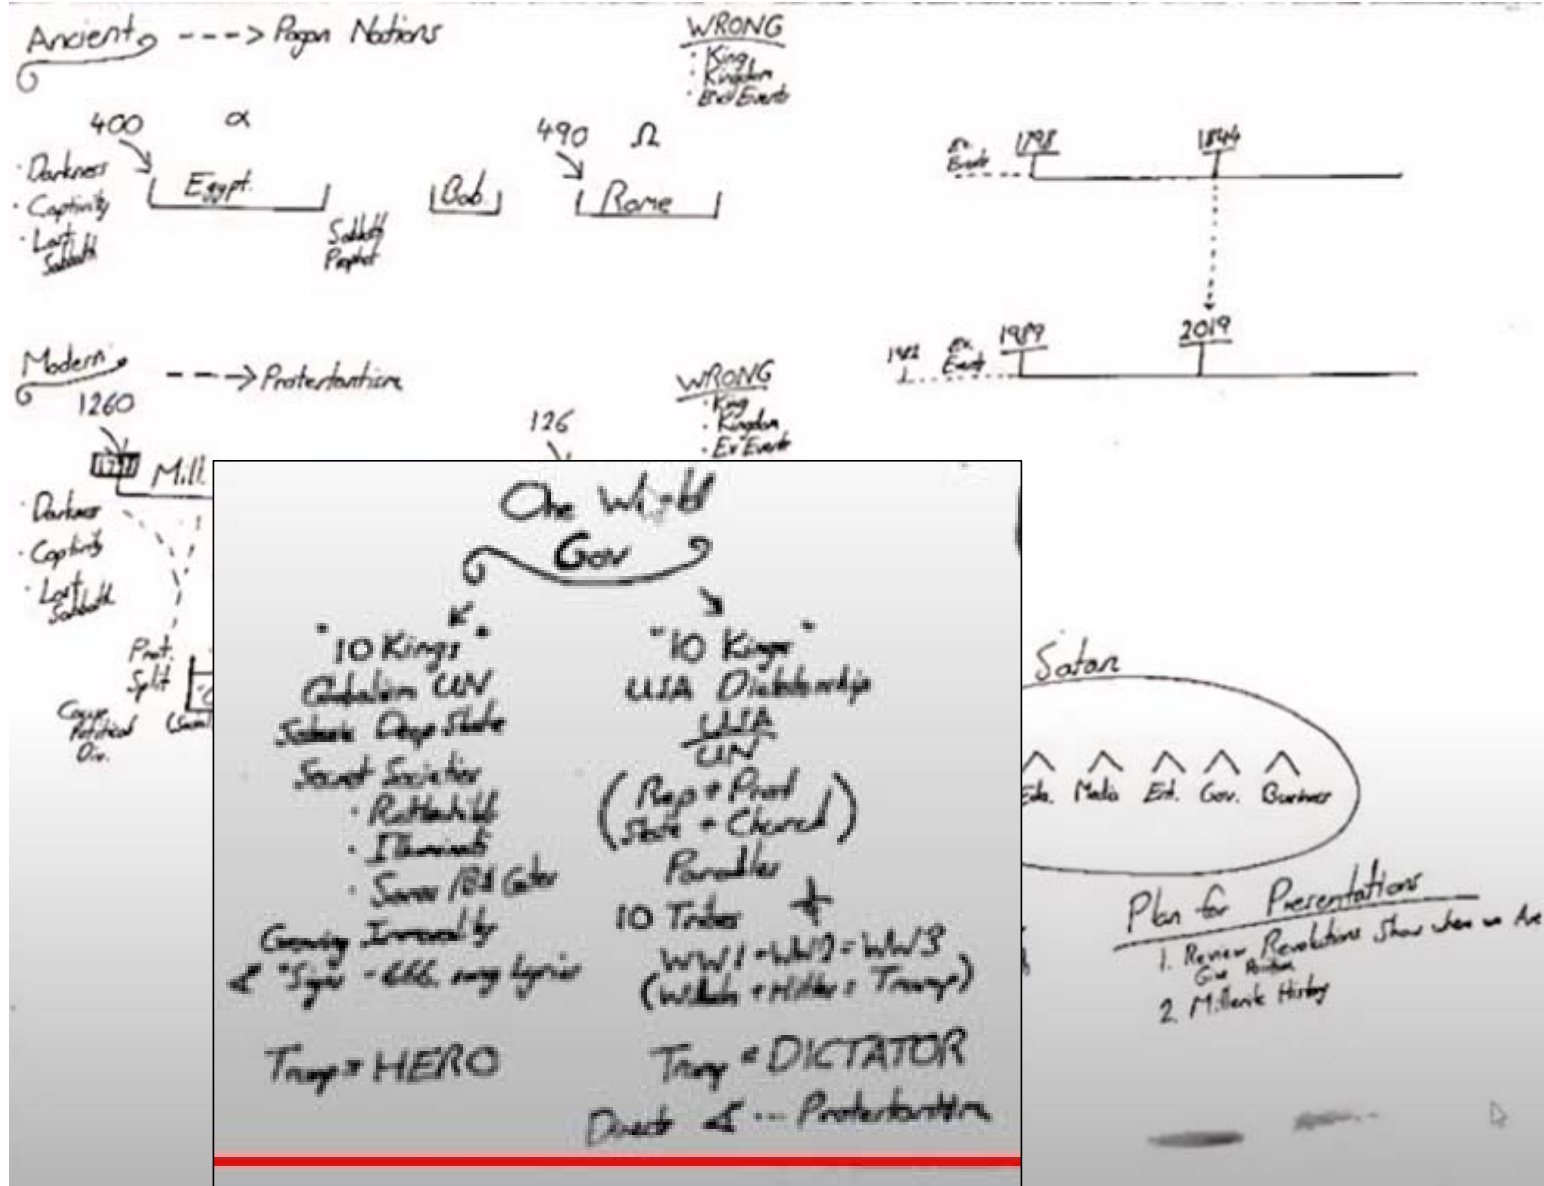 Ancient ---> Pagan Nations
WRONG
· King
· Kingdom
· Ex Events
400 α
490 Ω
· Darkness
· Captivity
· Lost
Sabbath
Egypt
Sabbath
Prophet
Bab.
Rome
Ex.
Events
1798
1844
1989
2019
Ex.
Events
Modern ---> Protestantism
WRONG
· King
· Kingdom
· Ex Events
1260
126
Mill.
· Darkness
· Captivity
· Lost
Sabbath
Prot.
Split
Political
Div.
One World
Gov
"10 Kings"
Globalism UN
Deep State
Secret Societies
· Illuminati
· Soros / Bill Gates
Growing Immorality
Trump = HERO
"10 Kings"
USA Dictatorship
USA
UN
(Rep + Prot
State + Church)
Parables
+
10 Tribes
WW1 + WW2 = WW3
(Wilhelm + Hitler = Trump)
Trump = DICTATOR
Protestantism
Satan
Edu. Media Ent. Gov. Business
Plan for Presentations
1. Review Revolutions Show when we Are
Give Position
2. Millerite History